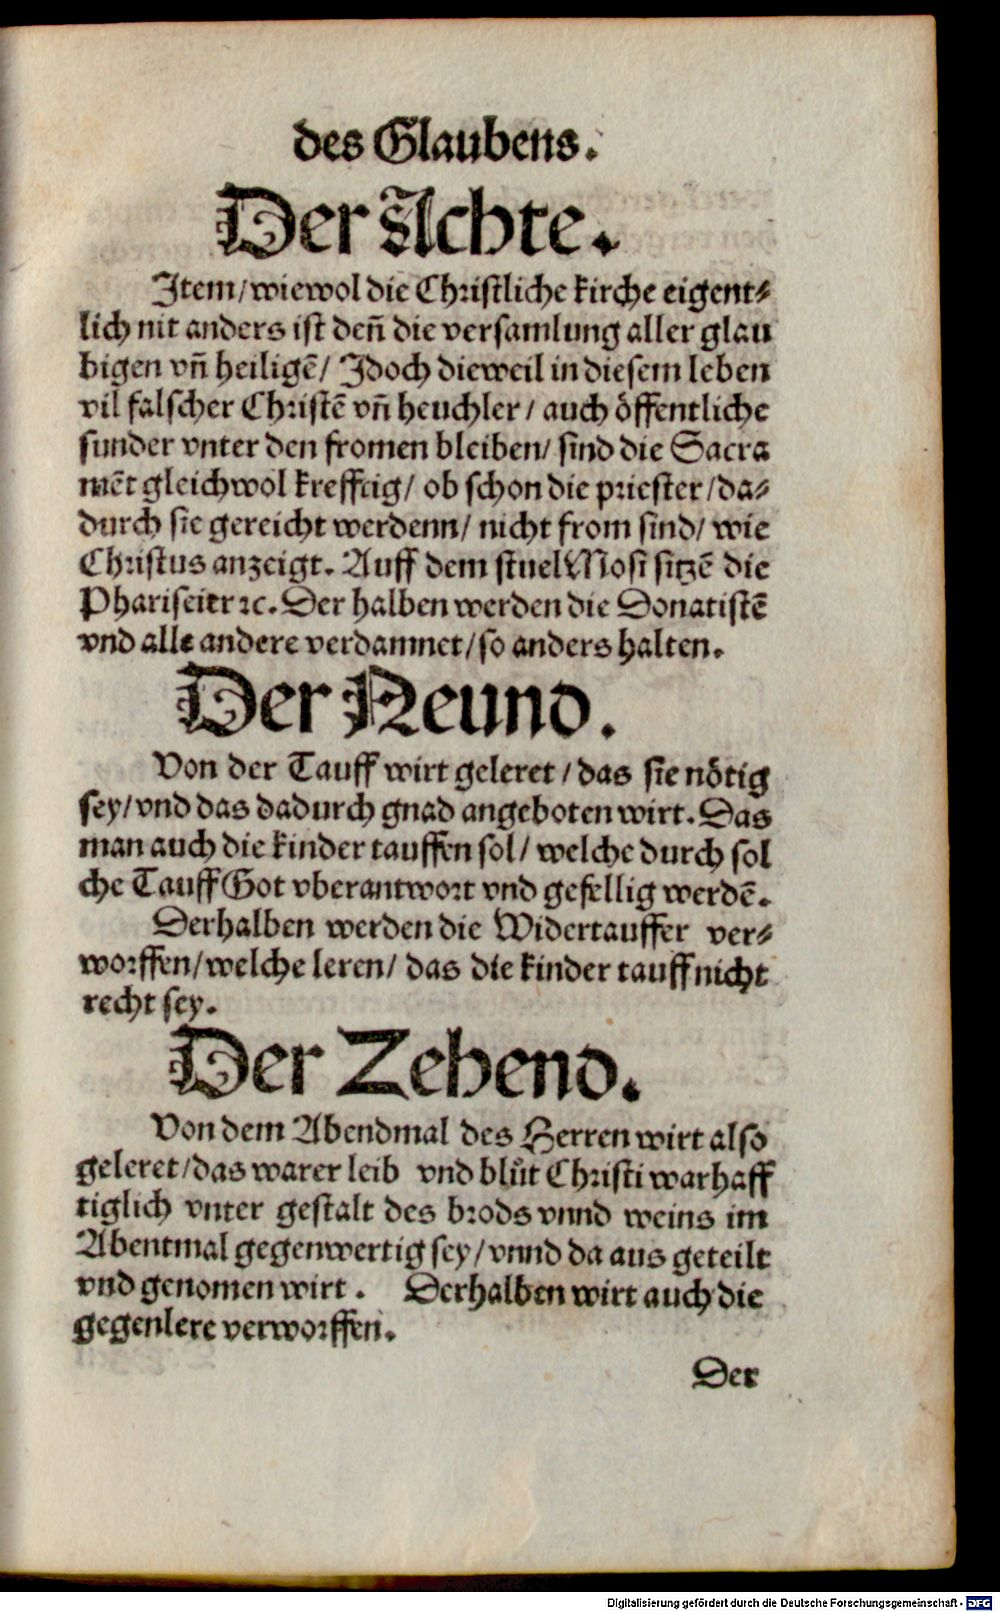 des Glaubens.
Der Achte.
Item/ wiewol die Christliche kirche eigent⸗
lich nit anders ist deñ die versamlung aller glau
bigen vñ heiligẽ/ Jdoch dieweil in diesem leben
vil falscher Christẽ vñ heuchler/ auch öffentliche
sunder vnter den fromen bleiben/ sind die Sacra
mẽt gleichwol krefftig/ ob schon die priester/ da⸗
durch sie gereicht werdenn/ nicht from sind/ wie
Christus anzeigt. Auff dem stuel Mosi sitzẽ die
Phariseier ꝛc. Der halben werden die Donatistẽ
vnd alle andere verdamnet/ so anders halten.
Der Neund.
Von der Tauff wirt geleret/ das sie nötig
sey/ vnd das dadurch gnad angeboten wirt. Das
man auch die kinder tauffen sol/ welche durch sol
che Tauff Got vberantwort vnd gefellig werdẽ.
Derhalben werden die Widertauffer ver⸗
worffen/ welche leren/ das die kinder tauff nicht
recht sey.
Der Zehend.
Von dem Abendmal des Herren wirt also
geleret/ das warer leib vnd blůt Christi warhaff
tiglich vnter gestalt des brods vnnd weins im
Abentmal gegenwertig sey/ vnnd da aus geteilt
vnd genomen wirt. Derhalben wirt auch die
gegenlere verworffen.
Der
Digitalisierung gefördert durch die Deutsche Forschungsgemeinschaft - DFG